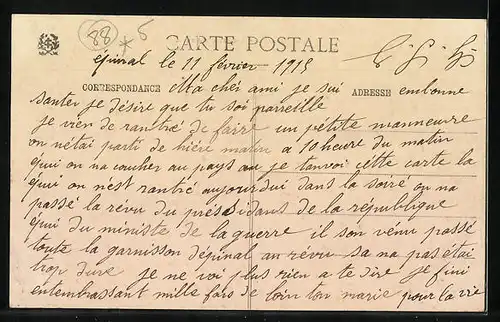 88 * 5
CARTE POSTALE
épinal le 11 février 1915
CORRESPONDANCE Ma cher ami je sui ADRESSE enbonne
santer je désire que tu soi pareille
je vien de rantré de faire un pétite manneuvre
on netai parti de hière matin a 10 heure du matin
qui on na coucher au pays au je tanvoi cette carte la
qui on n'est rantré aujourdui dans la soiré on na
passé la révu du présidans de la république
qui du ministe de la guerre il son venu passé
toute la garnisson dépinal an révu sa na pas étai
trop dure je ne voi plus rien a te dire je fini
entembrassant mille fois de loin ton marie pour la vie